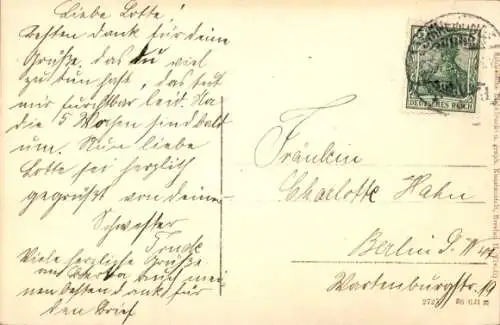 Liebe Lotte!
Besten Dank für deine
Grüße. das du viel
zu tun hast, das tut
mir furchtbar leid. Na
die 5 Wochen sind bald
um. Nun liebe
Lotte sei herzlich
gegrüßt von deiner
Schwester
Trude
Viele herzliche Grüße
an Berta auch mei
nen besten Dank für
den Brief
DEUTSCHES REICH
Fräulein
Charlotte Hahn
Berlin S. W.
Wartenburgstr. 19